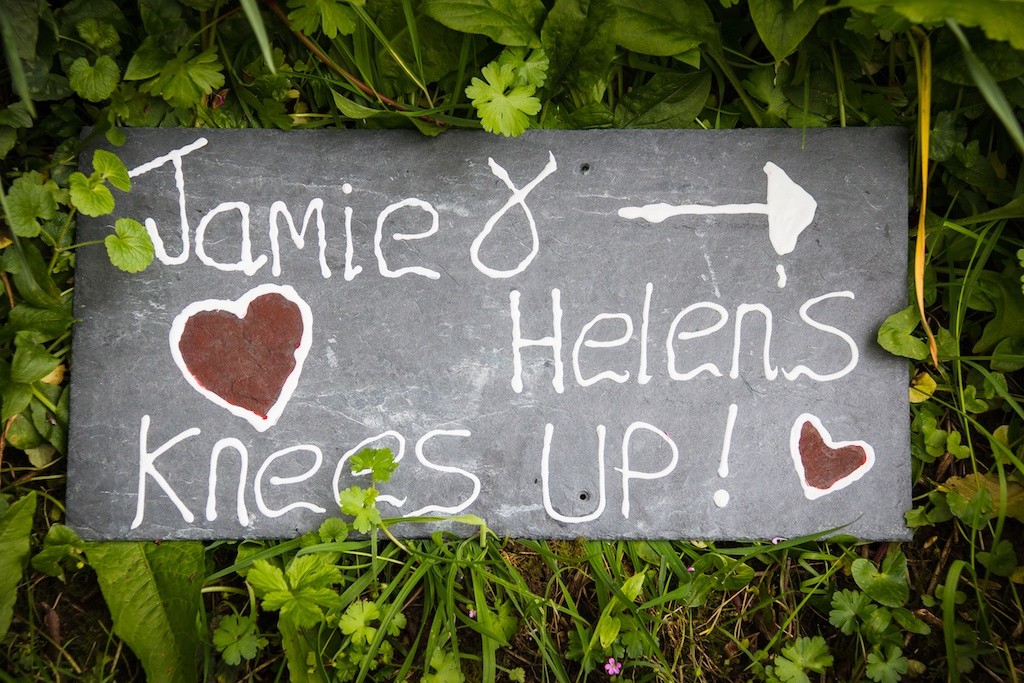 Jamie &
Helen's
Knees UP!